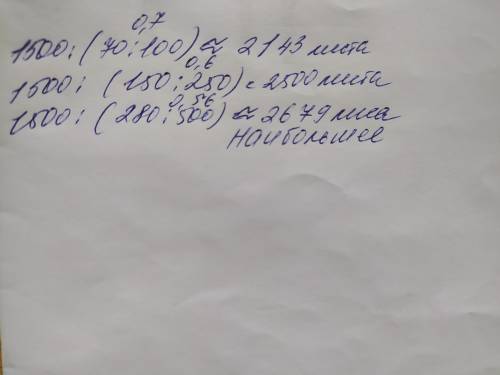 0,7
1500:(70:100)≈ 2143 листа
0,6
1500: (150:250)=2500 листа
0,56
1500:(280:500)≈2679 лиса
Наибольшее